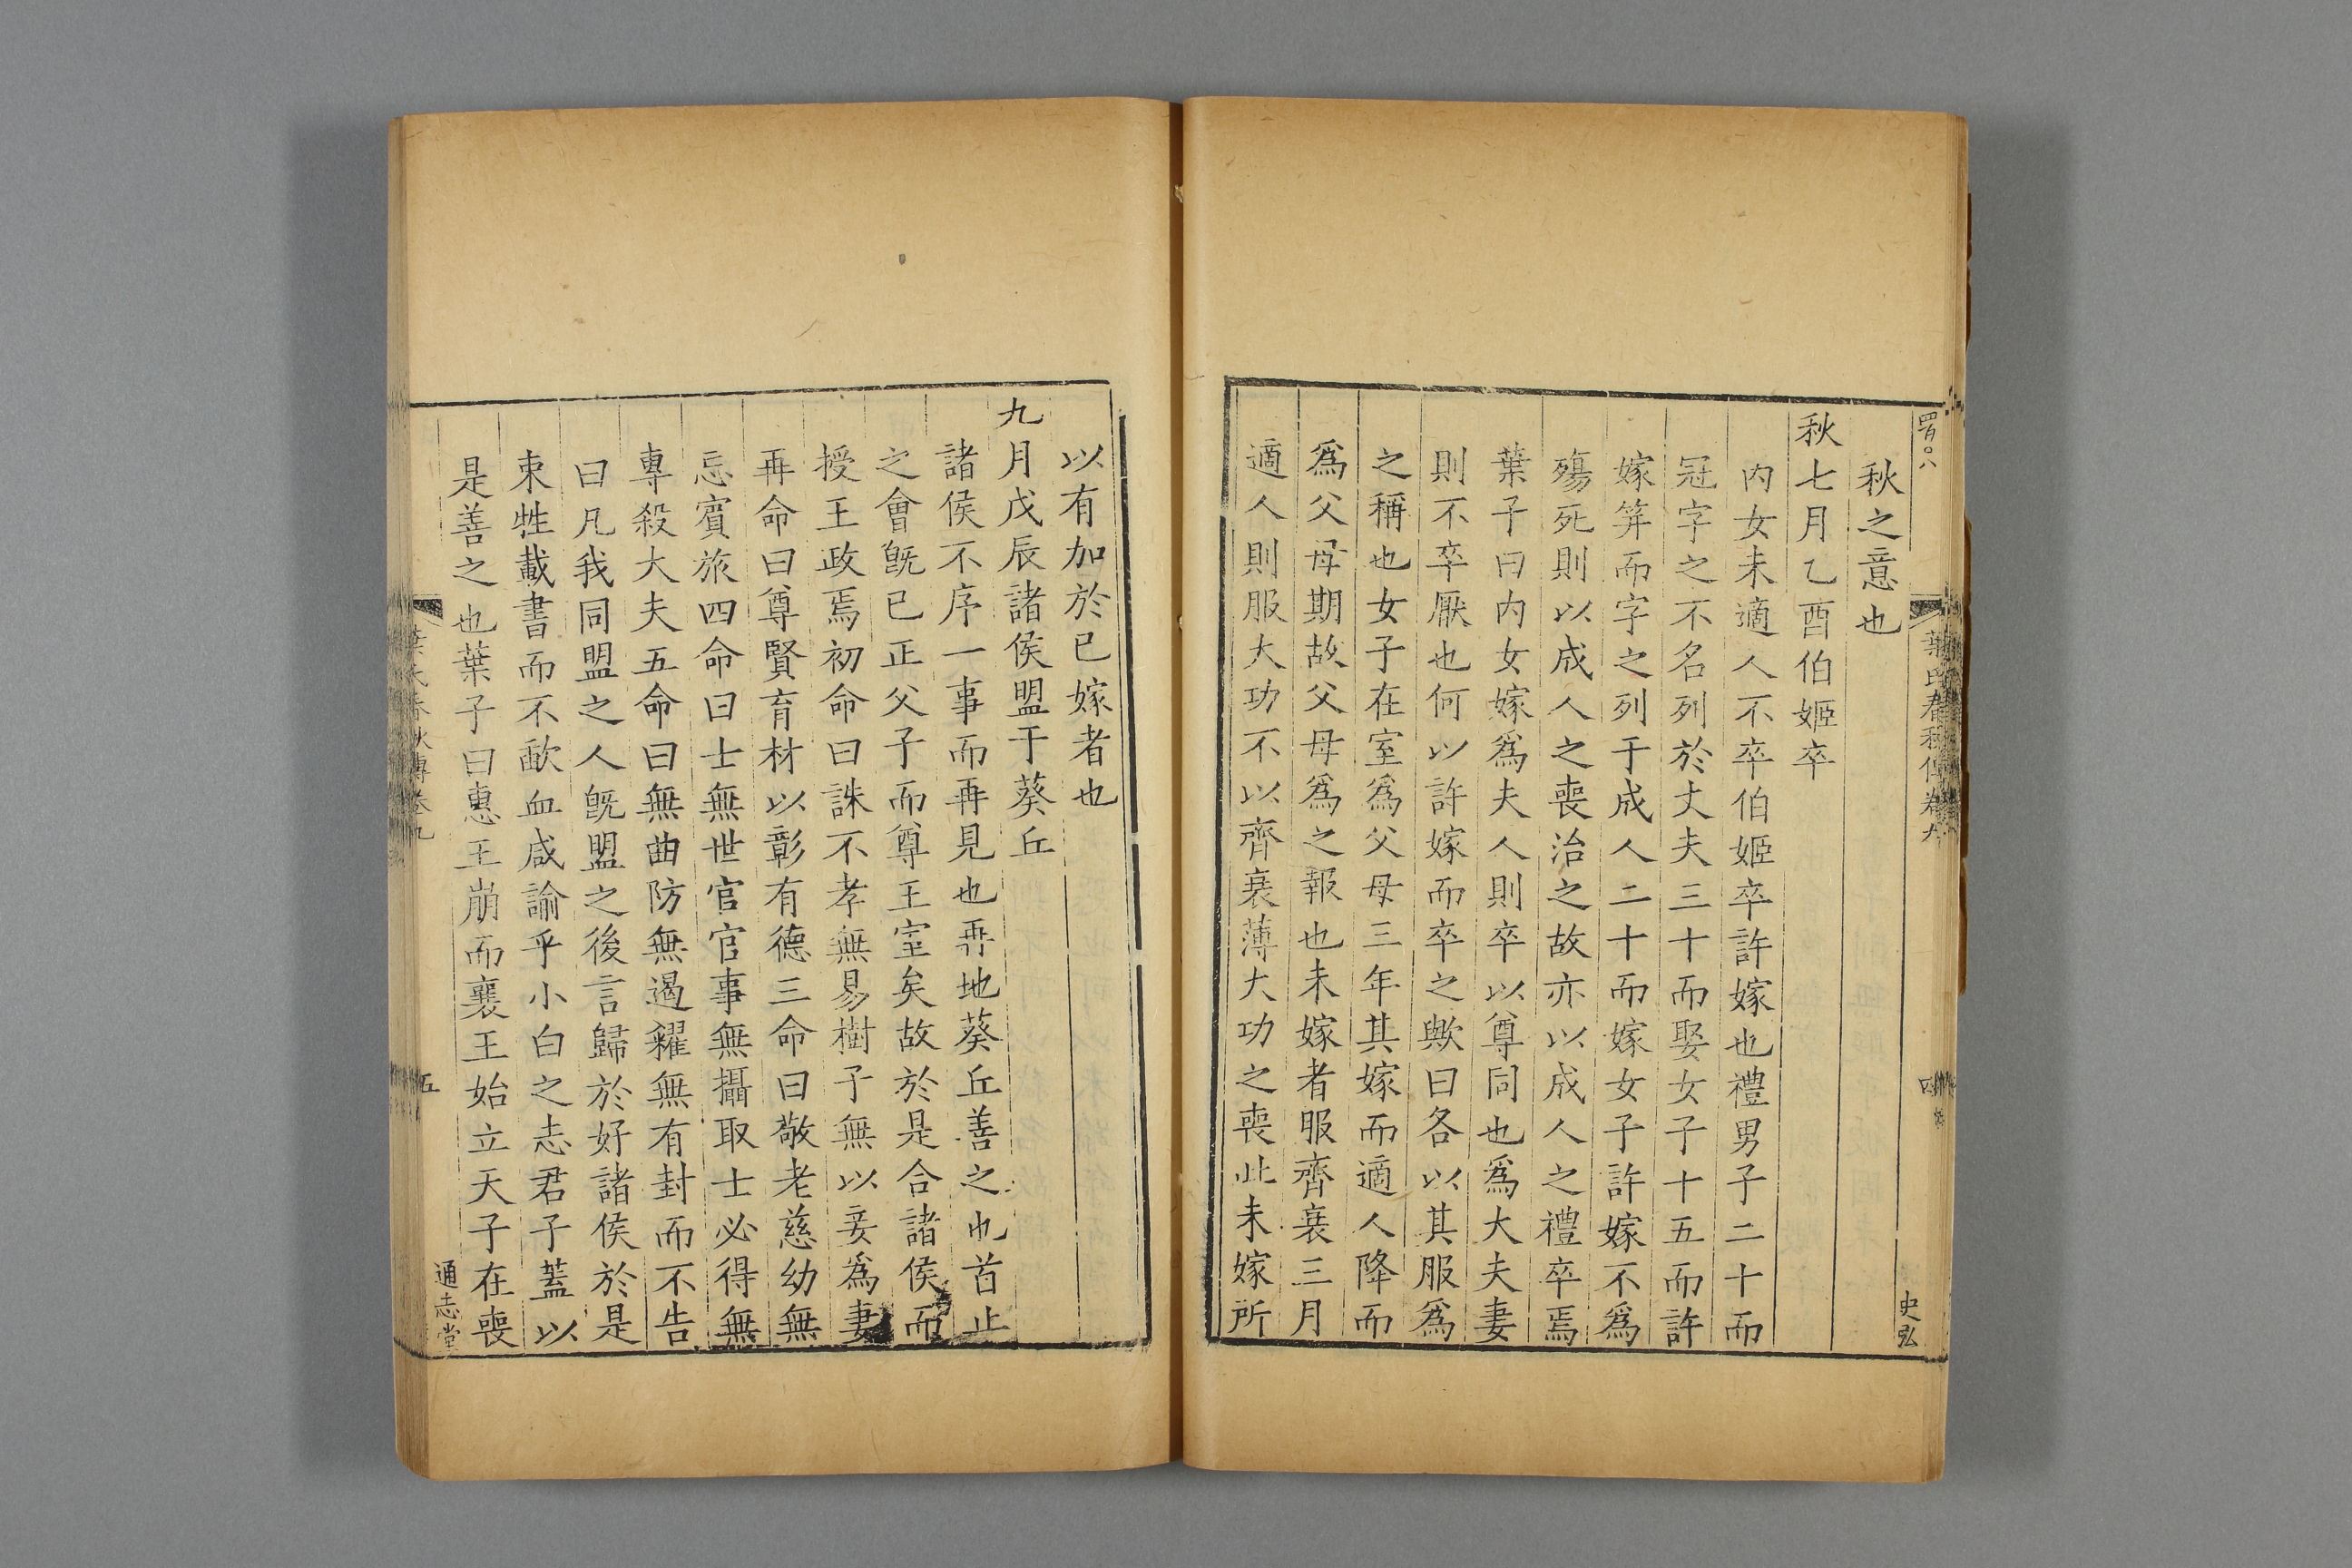 秋之意也
秋七月乙酉伯姬卒
内女未適人不卒伯姬卒許嫁也禮男子二十而
冠字之不名列於丈夫三十而娶女子十五而許
嫁筓而字之列于成人二十而嫁女子許嫁不爲
殤死則以成人之喪治之故亦以成人之禮卒焉
葉子曰内女嫁爲夫人則卒以尊同也爲大夫妻
則不卒厭也何以許嫁而卒之歟曰各以其服爲
之稱也女子在室爲父母三年其嫁而適人降而
爲父母期故父母爲之報也未嫁者服齊衰三月
適人則服大功不以齊衰薄大功之喪此未嫁所
史弘
以有加於已嫁者也
九月戊辰諸侯盟于葵丘
諸侯不序一事而再見也再地葵丘善之也首止
之會旣已正父子而尊王室矣故於是合諸侯而
授王政焉初命曰誅不孝無易樹子無以妾爲妻
再命曰尊賢育材以彰有德三命曰敬老慈幼無
忘賓旅四命曰士無世官官事無攝取士必得無
專殺大夫五命曰無曲防無遏糴無有封而不告
曰凡我同盟之人旣盟之後言歸於好諸侯於是
束牲載書而不歃血咸諭乎小白之志君子蓋以
是善之也葉子曰惠王崩而襄王始立天子在喪
五
通志堂